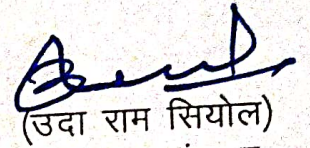 (उदा राम सियोल)